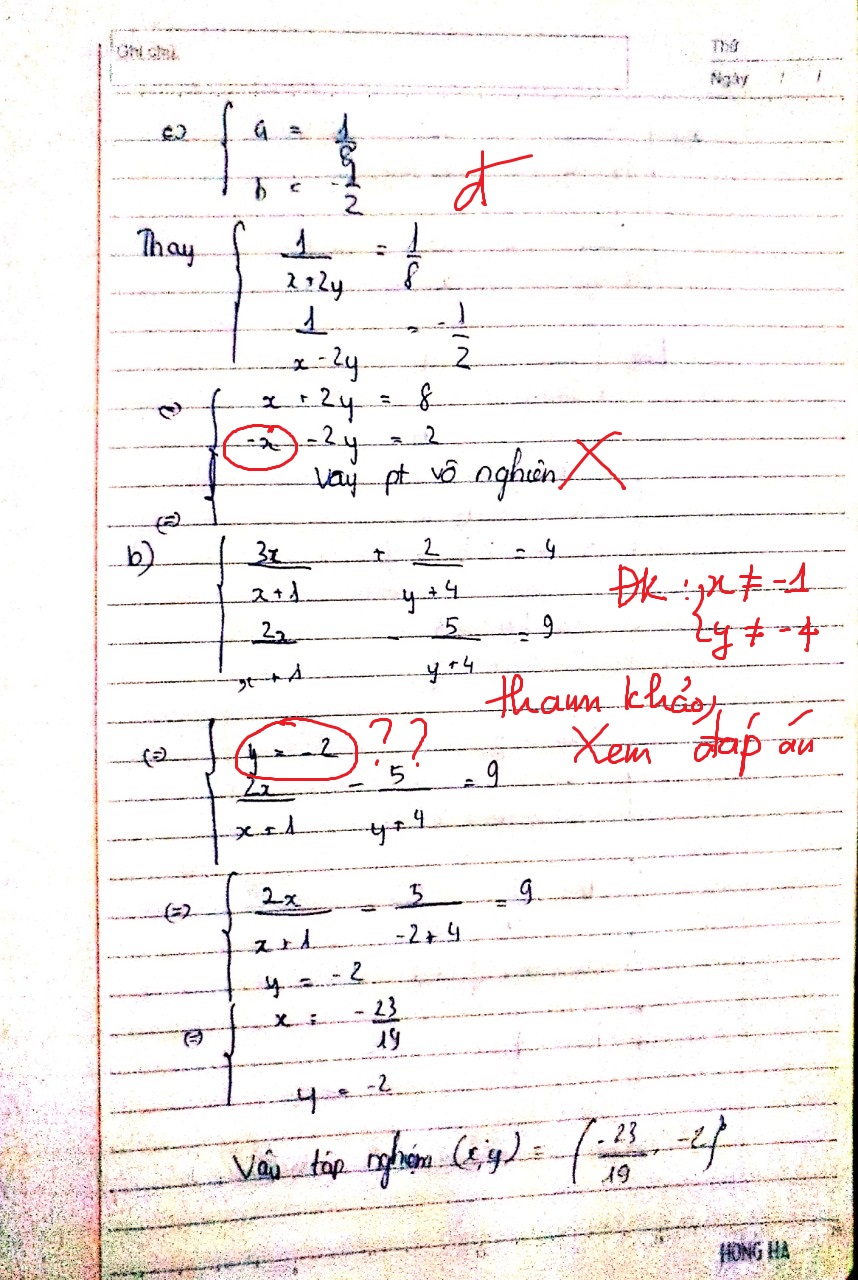 Ghi chú
Thứ
Ngày / /
⇔ { a = 1/8
b = -1/2
đ
Thay { 1/(x+2y) = 1/8
1/(x-2y) = -1/2
⇔ { x + 2y = 8
-x - 2y = 2
Vay pt vô nghiên X
⇔
b) { 3x/(x+1) + 2/(y+4) = 4
2x/(x+1) - 5/(y+4) = 9
ĐK : { x ≠ -1
y ≠ -4
tham khảo,
Xem đáp án
⇔ { y = -2 ??
2x/(x+1) - 5/(y+4) = 9
⇔ { 2x/(x+1) - 5/(-2+4) = 9
y = -2
⇔ { x = -23/19
y = -2
Vâu táp nghiệm (x;y) = (-23/19, -2)
HONG HA